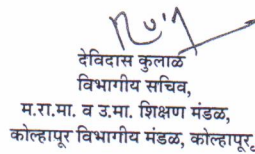 देविदास कुलाळ
विभागीय सचिव,
म.रा.मा. व उ.मा. शिक्षण मंडळ,
कोल्हापूर विभागीय मंडळ, कोल्हापूर.